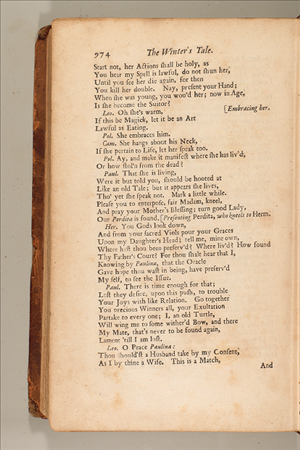 974 The Winter's Tale.
Start not, her Actions shall be holy, as
You hear my Spell is lawful, do not shun her,
Until you see her die again, for then
You kill her double. Nay, present your Hand;
When she was young, you woo'd her; now in Age,
Is she become the Suitor? [Embracing her.
Leo. Oh she's warm,
If this be Magick, let it be an Art
Lawful as Eating.
Pol. She embraces him.
Cam. She hangs about his Neck,
If she pertain to Life, let her speak too.
Pol. Ay, and make it manifest where she has liv'd,
Or how stol'n from the dead!
Paul. That she is living,
Were it but told you, should be hooted at
Like an old Tale; but it appears she lives,
Tho' yet she speak not. Mark a little while.
Please you to enterpose, fair Madam, kneel,
And pray your Mother's Blessing; turn good Lady,
Our Perdita is found, [Presenting Perdita, who kneels to Herm.
Her. You Gods look down,
And from your sacred Viols pour your Graces
Upon my Daughter's Head; tell me, mine own,
Where hast thou been preserv'd? Where liv'd? How found
Thy Father's Court? For thou shalt hear that I,
Knowing by Paulina, that the Oracle
Gave hope thou wast in being, have preserv'd
My self, to see the Issue.
Paul. There is time enough for that;
Lest they desire, upon this push, to trouble
Your Joys with like Relation. Go together
You precious Winners all, your Exultation
Partake to every one; I, an old Turtle,
Will wing me to some wither'd Bow, and there
My Mate, that's never to be found again,
Lament 'till I am lost.
Leo. O Peace Paulina:
Thou should'st a Husband take by my Consent,
As I by thine a Wife. This is a Match,
And